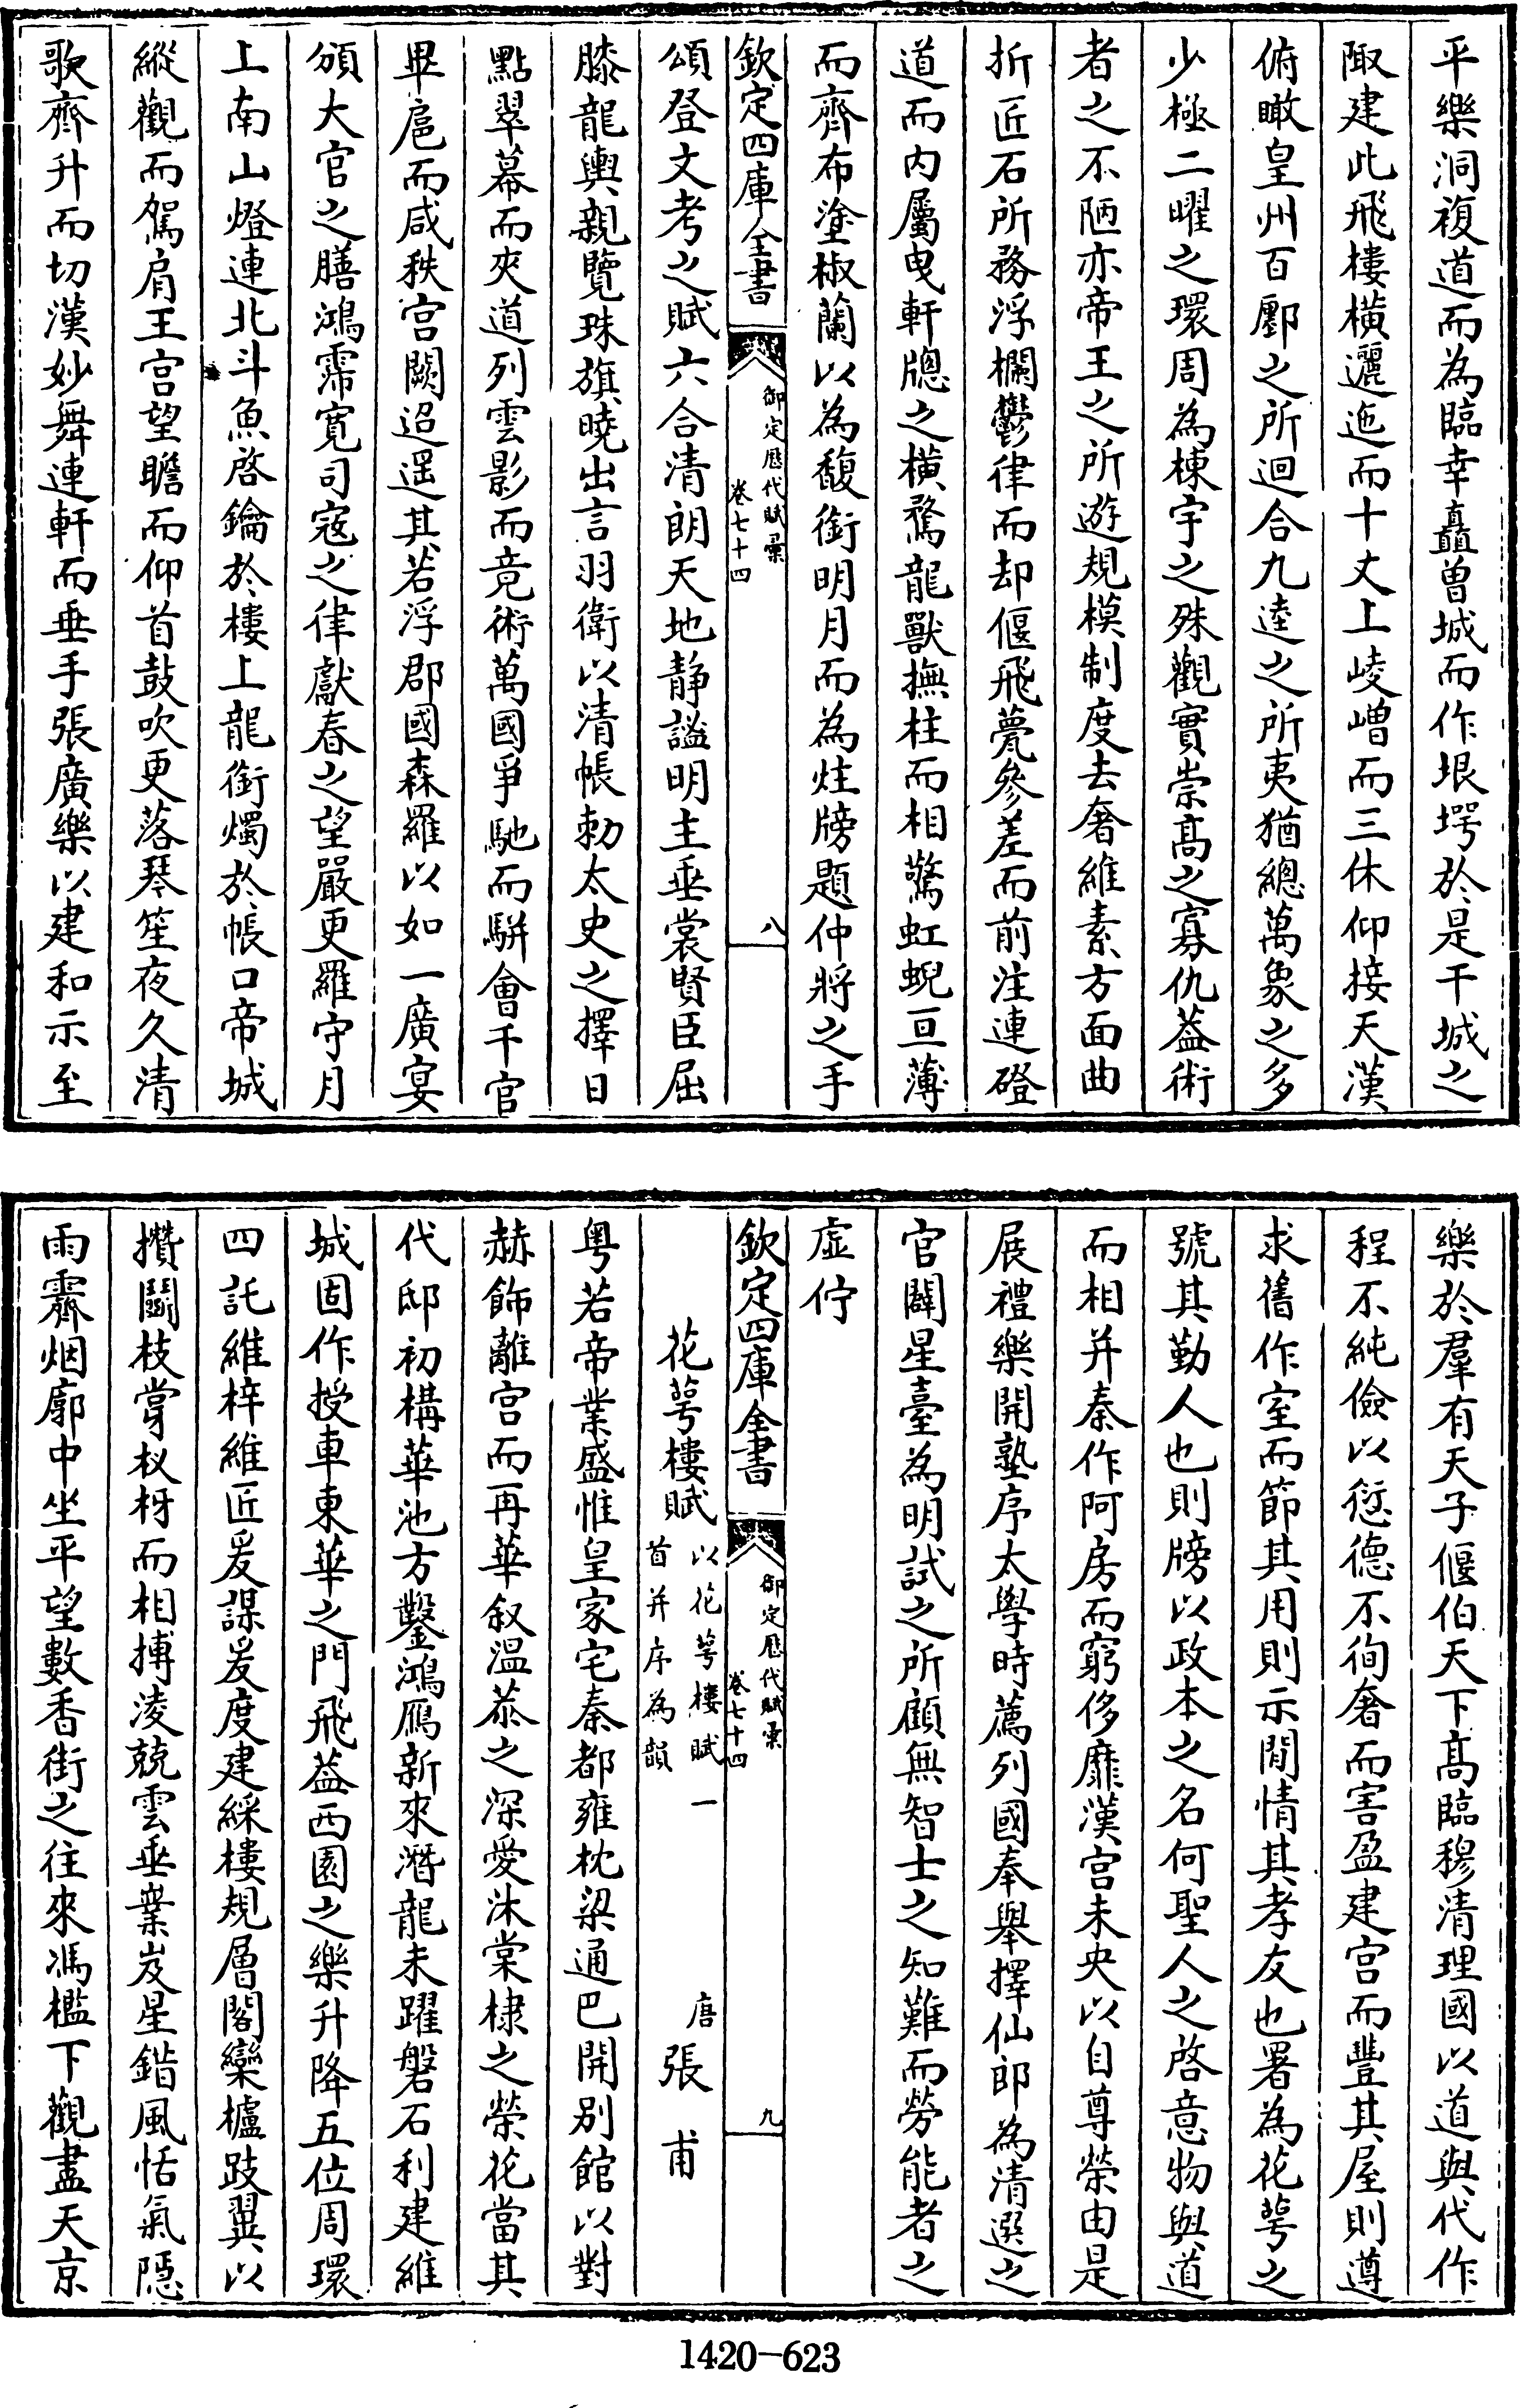 平樂洞複道而為臨幸矗曽城而作垠堮於是干城之
陬建此飛樓橫邐迤而十丈上崚嶒而三休仰接天漢
俯瞰皇州百鄽之所迴合九逵之所夷猶總萬象之多
少極二曜之環周為棟宇之殊觀實崇髙之寡仇葢術
者之不陋亦帝王之所遊規模制度去奢維素方面曲
折匠石所務浮欄鬱律而却偃飛甍參差而前注連磴
道而内屬曳軒牕之橫騖龍獸撫柱而相驚虹蜺亘薄
而齊布塗椒蘭以為馥銜明月而為炷牓題仲將之手
欽定四庫全書
御定歴代賦彙
卷七十四
八
頌登文考之賦六合清朗天地静謐明主垂裳賢臣屈
膝龍輿親覽珠旗曉出言羽衛以清帳勅太史之擇日
點翠幕而夾道列雲影而竟術萬國爭馳而駢會千官
畢扈而咸秩宫闕迢遥其若浮郡國森羅以如一廣宴
頒大官之膳鴻霈寛司寇之律獻春之望嚴更羅守月
上南山燈連北斗魚啓鑰於樓上龍銜燭於帳口帝城
縱觀而駕肩王宫望瞻而仰首鼓吹更落琴笙夜久清
歌齊升而切漢妙舞連軒而垂手張廣樂以建和示至
樂於羣有天子偃伯天下髙臨穆清理國以道與代作
程不純儉以愆德不徇奢而害盈建宫而豐其屋則遵
求舊作室而節其用則示閒情其孝友也署為花萼之
號其勤人也則牓以政本之名何聖人之啓意物與道
而相并秦作阿房而窮侈靡漢宫未央以自尊榮由是
展禮樂開塾序太學時薦列國奉舉擇仙郎為清選之
官闢星臺為明試之所顧無智士之知難而勞能者之
虛佇
欽定四庫全書
御定歴代賦彙
卷七十四
九
花萼樓賦 以花萼樓賦一首并序為韻 唐 張 甫
粤若帝業盛惟皇家宅秦都雍枕梁通巴開別館以對
赫飾離宫而再華叙温恭之深愛沐棠棣之榮花當其
代邸初構華池方鑿鴻鴈新來潛龍未躍磐石利建維
城固作授車東華之門飛葢西園之樂升降五位周環
四託維梓維匠爰謀爰度建綵樓規層閣欒櫨跂翼以
攢鬬枝掌杈枒而相摶淩兢雲垂業岌星鍇風恬氣隱
雨霽烟廓中坐平望數香街之往來馮檻下觀盡天京
1420-623